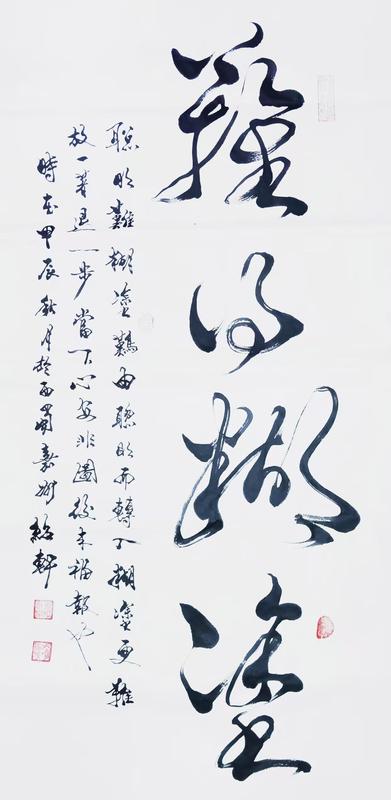 難得糊塗
聰明難糊塗難由聰明而轉入糊塗更難
放一著退一步當下心安非圖後來福報也
時在甲辰秋月於西蜀嘉州 軒